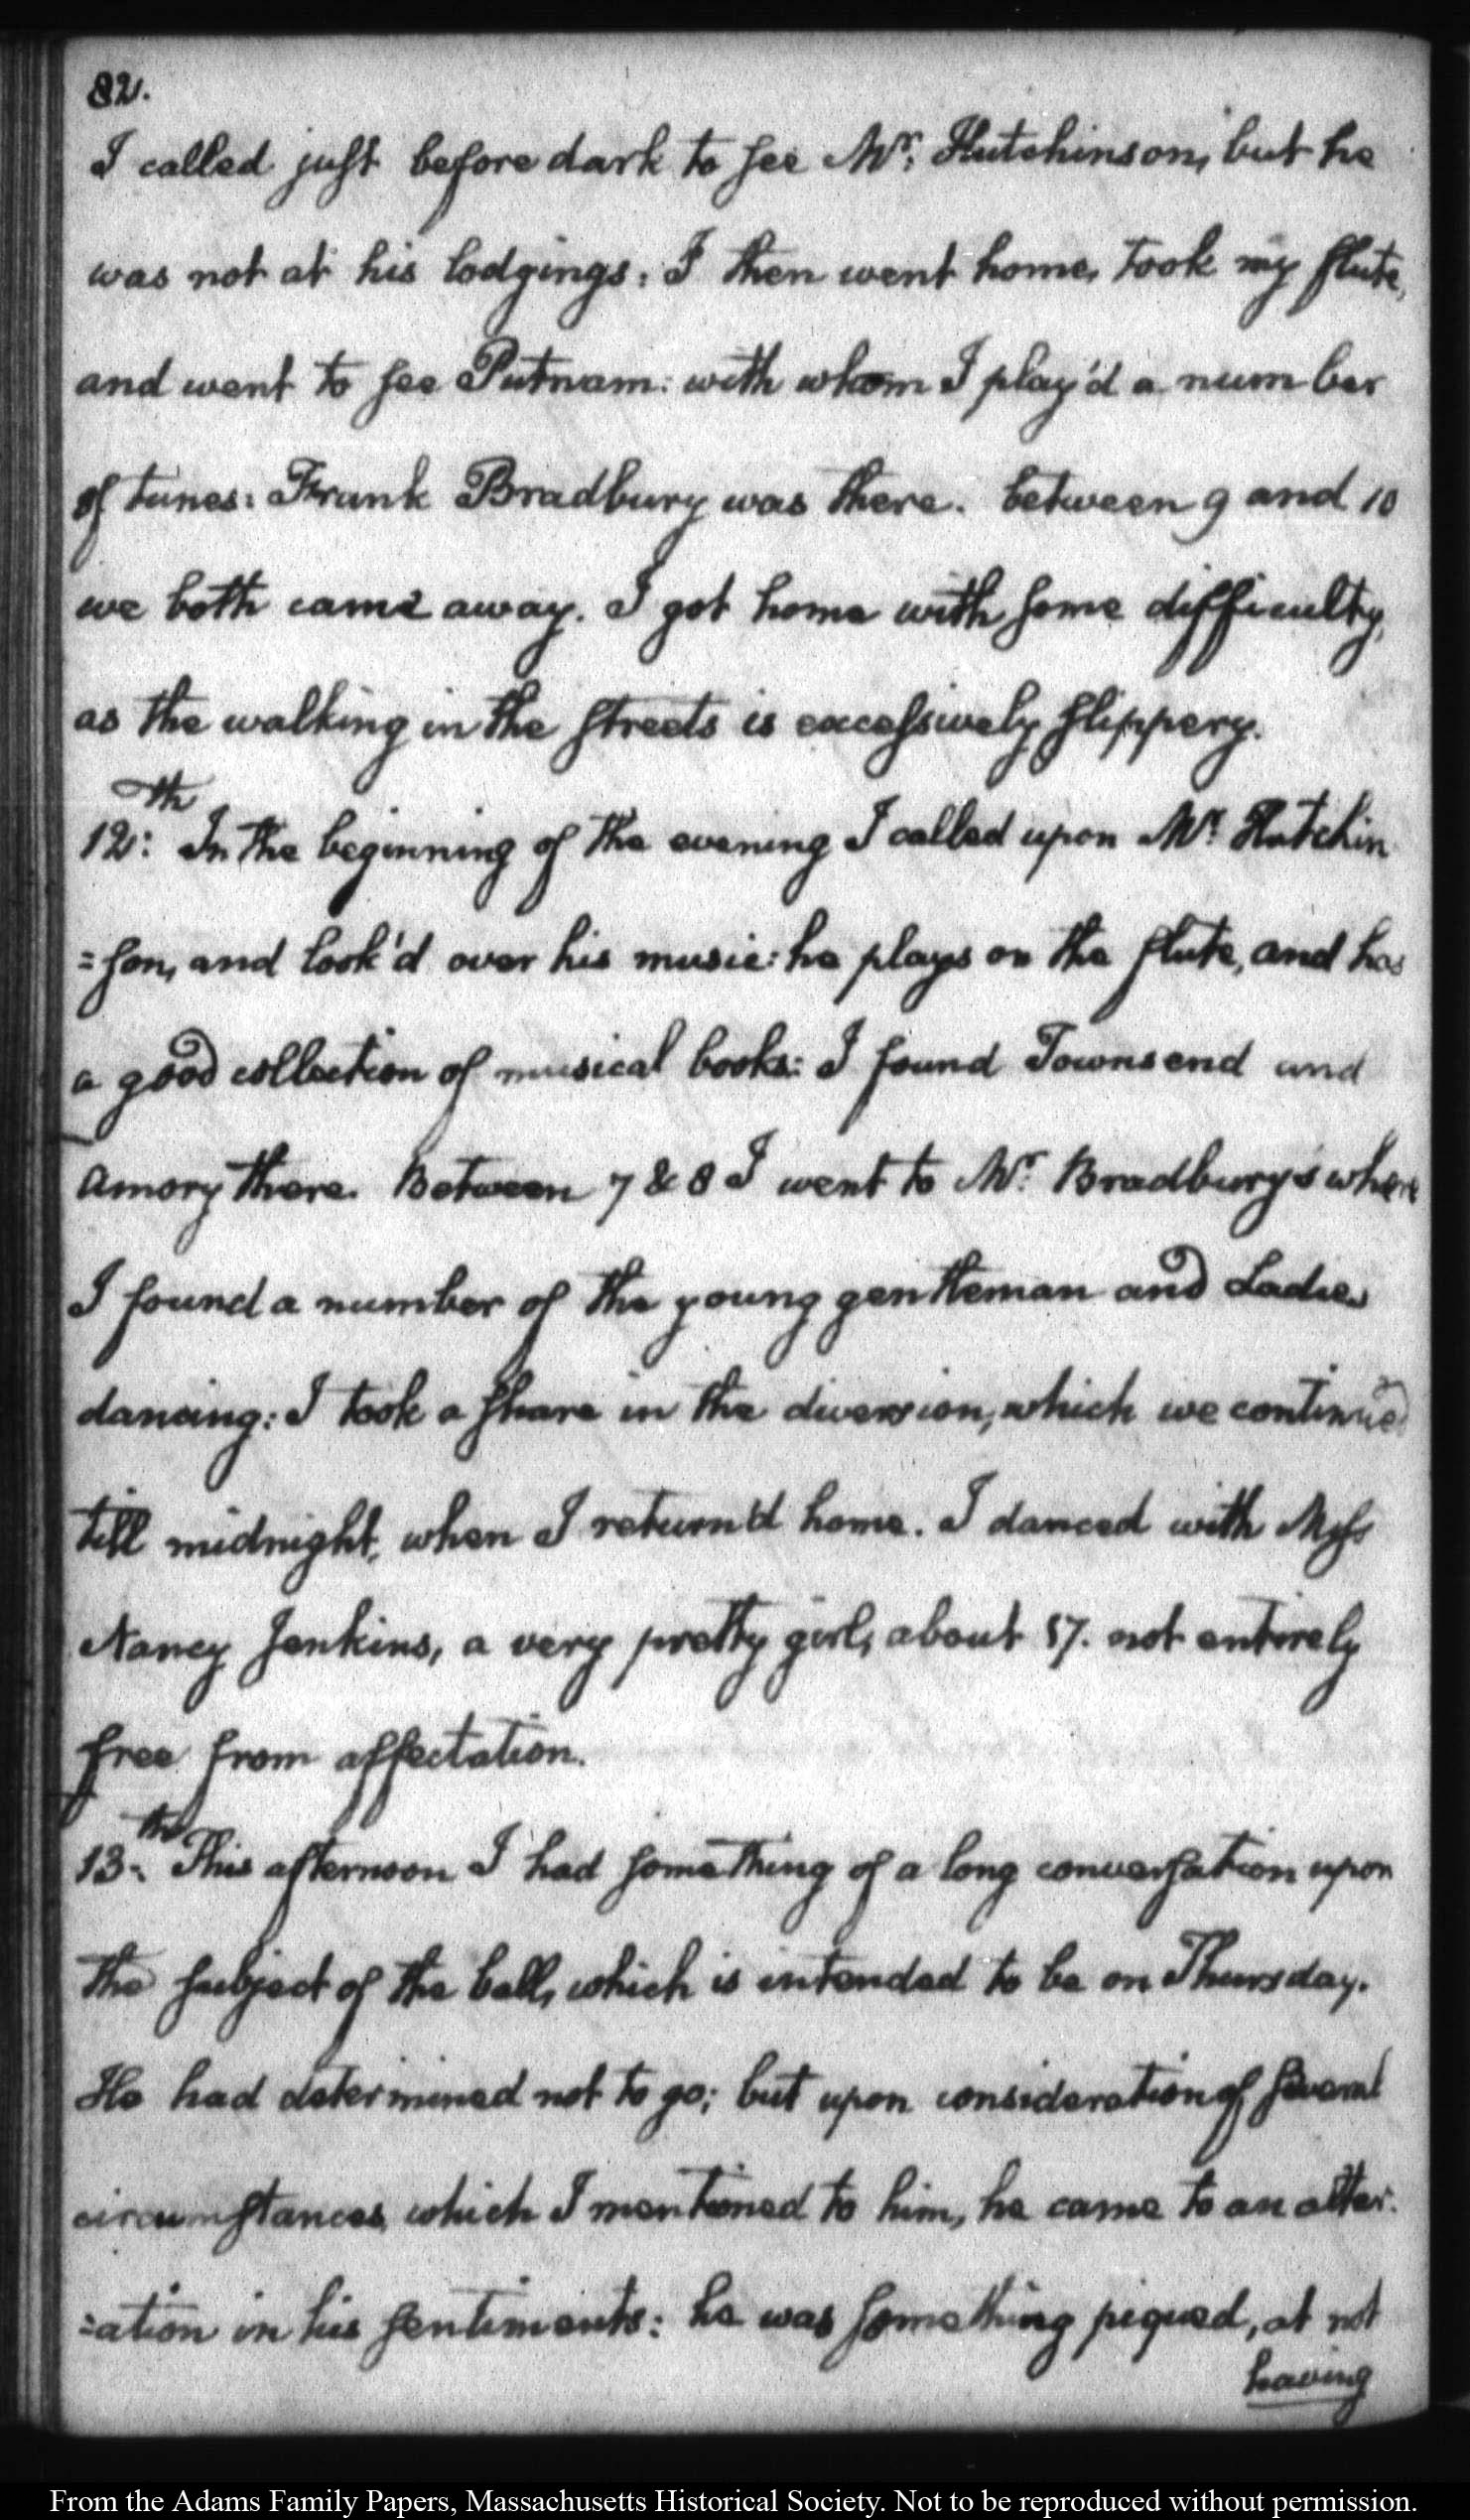 82.
I called just before dark to see Mr. Hutchinson, but he
was not at his lodgings: I then went home, took my flute,
and went to see Putnam: with whom I play'd a number
of tunes: Frank Bradbury was there. between 9 and 10
we both came away. I got home with some difficulty,
as the walking in the streets is excessively slippery.
12th: In the beginning of the evening I called upon Mr. Hutchin
=son, and look'd over his music: he plays on the flute, and has
a good collection of musical books: I found Townsend and
Amory there. Between 7 & 8 I went to Mr. Bradbury's where
I found a number of the young gentleman and Ladies
dancing: I took a share in the diversion, which we continued
till midnight, when I return'd home. I danced with Miss
Nancy Jenkins, a very pretty girl, about 17. not entirely
free from affectation.
13th: This afternoon I had something of a long conversation upon
the subject of the ball, which is intended to be on Thursday.
He had determined not to go; but upon consideration of several
circumstances, which I mentioned to him, he came to an alter.
=ation in his sentiments: he was something piqued, at not
having
From the Adams Family Papers, Massachusetts Historical Society. Not to be reproduced without permission.